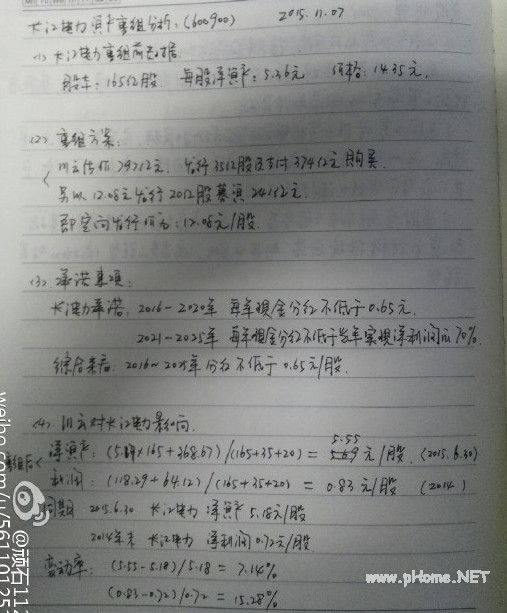 长江电力资产重组分析：(600900) 2015.11.07
(1) 长江电力重组前数据
股本：165亿股 每股净资产：5.36元 价格：14.35元.
(2) 重组方案：
川云估价797亿元. 发行35亿股及支付374亿元购买.
另以12.08元发行20亿股募资241亿元.
即定向发行价为：12.08元/股.
(3) 承诺事项：
长江电力承诺：2016-2020年 每年现金分红不低于0.65元.
2021-2025年 每年现金分红不低于当年实现净利润的70%.
综合来看：2016~2025年分红不低于0.65元/股.
(4) 川云对长江电力影响.
重组后 净资产：(5.18×165+368.67)/(165+35+20) = 5.55 元/股. (2015.6.30)
利润：(118.29+64.12)/(165+35+20) = 0.83元/股 (2014)
同期 2015.6.30 长江电力 净资产 5.18元/股
2014年末 长江电力 净利润 0.72元/股
变动率：(5.55-5.18)/5.18 = 7.14%
(0.83-0.72)/0.72 = 15.28%
weibo.com/u/56110125
@顽石11
www.pHome.NET